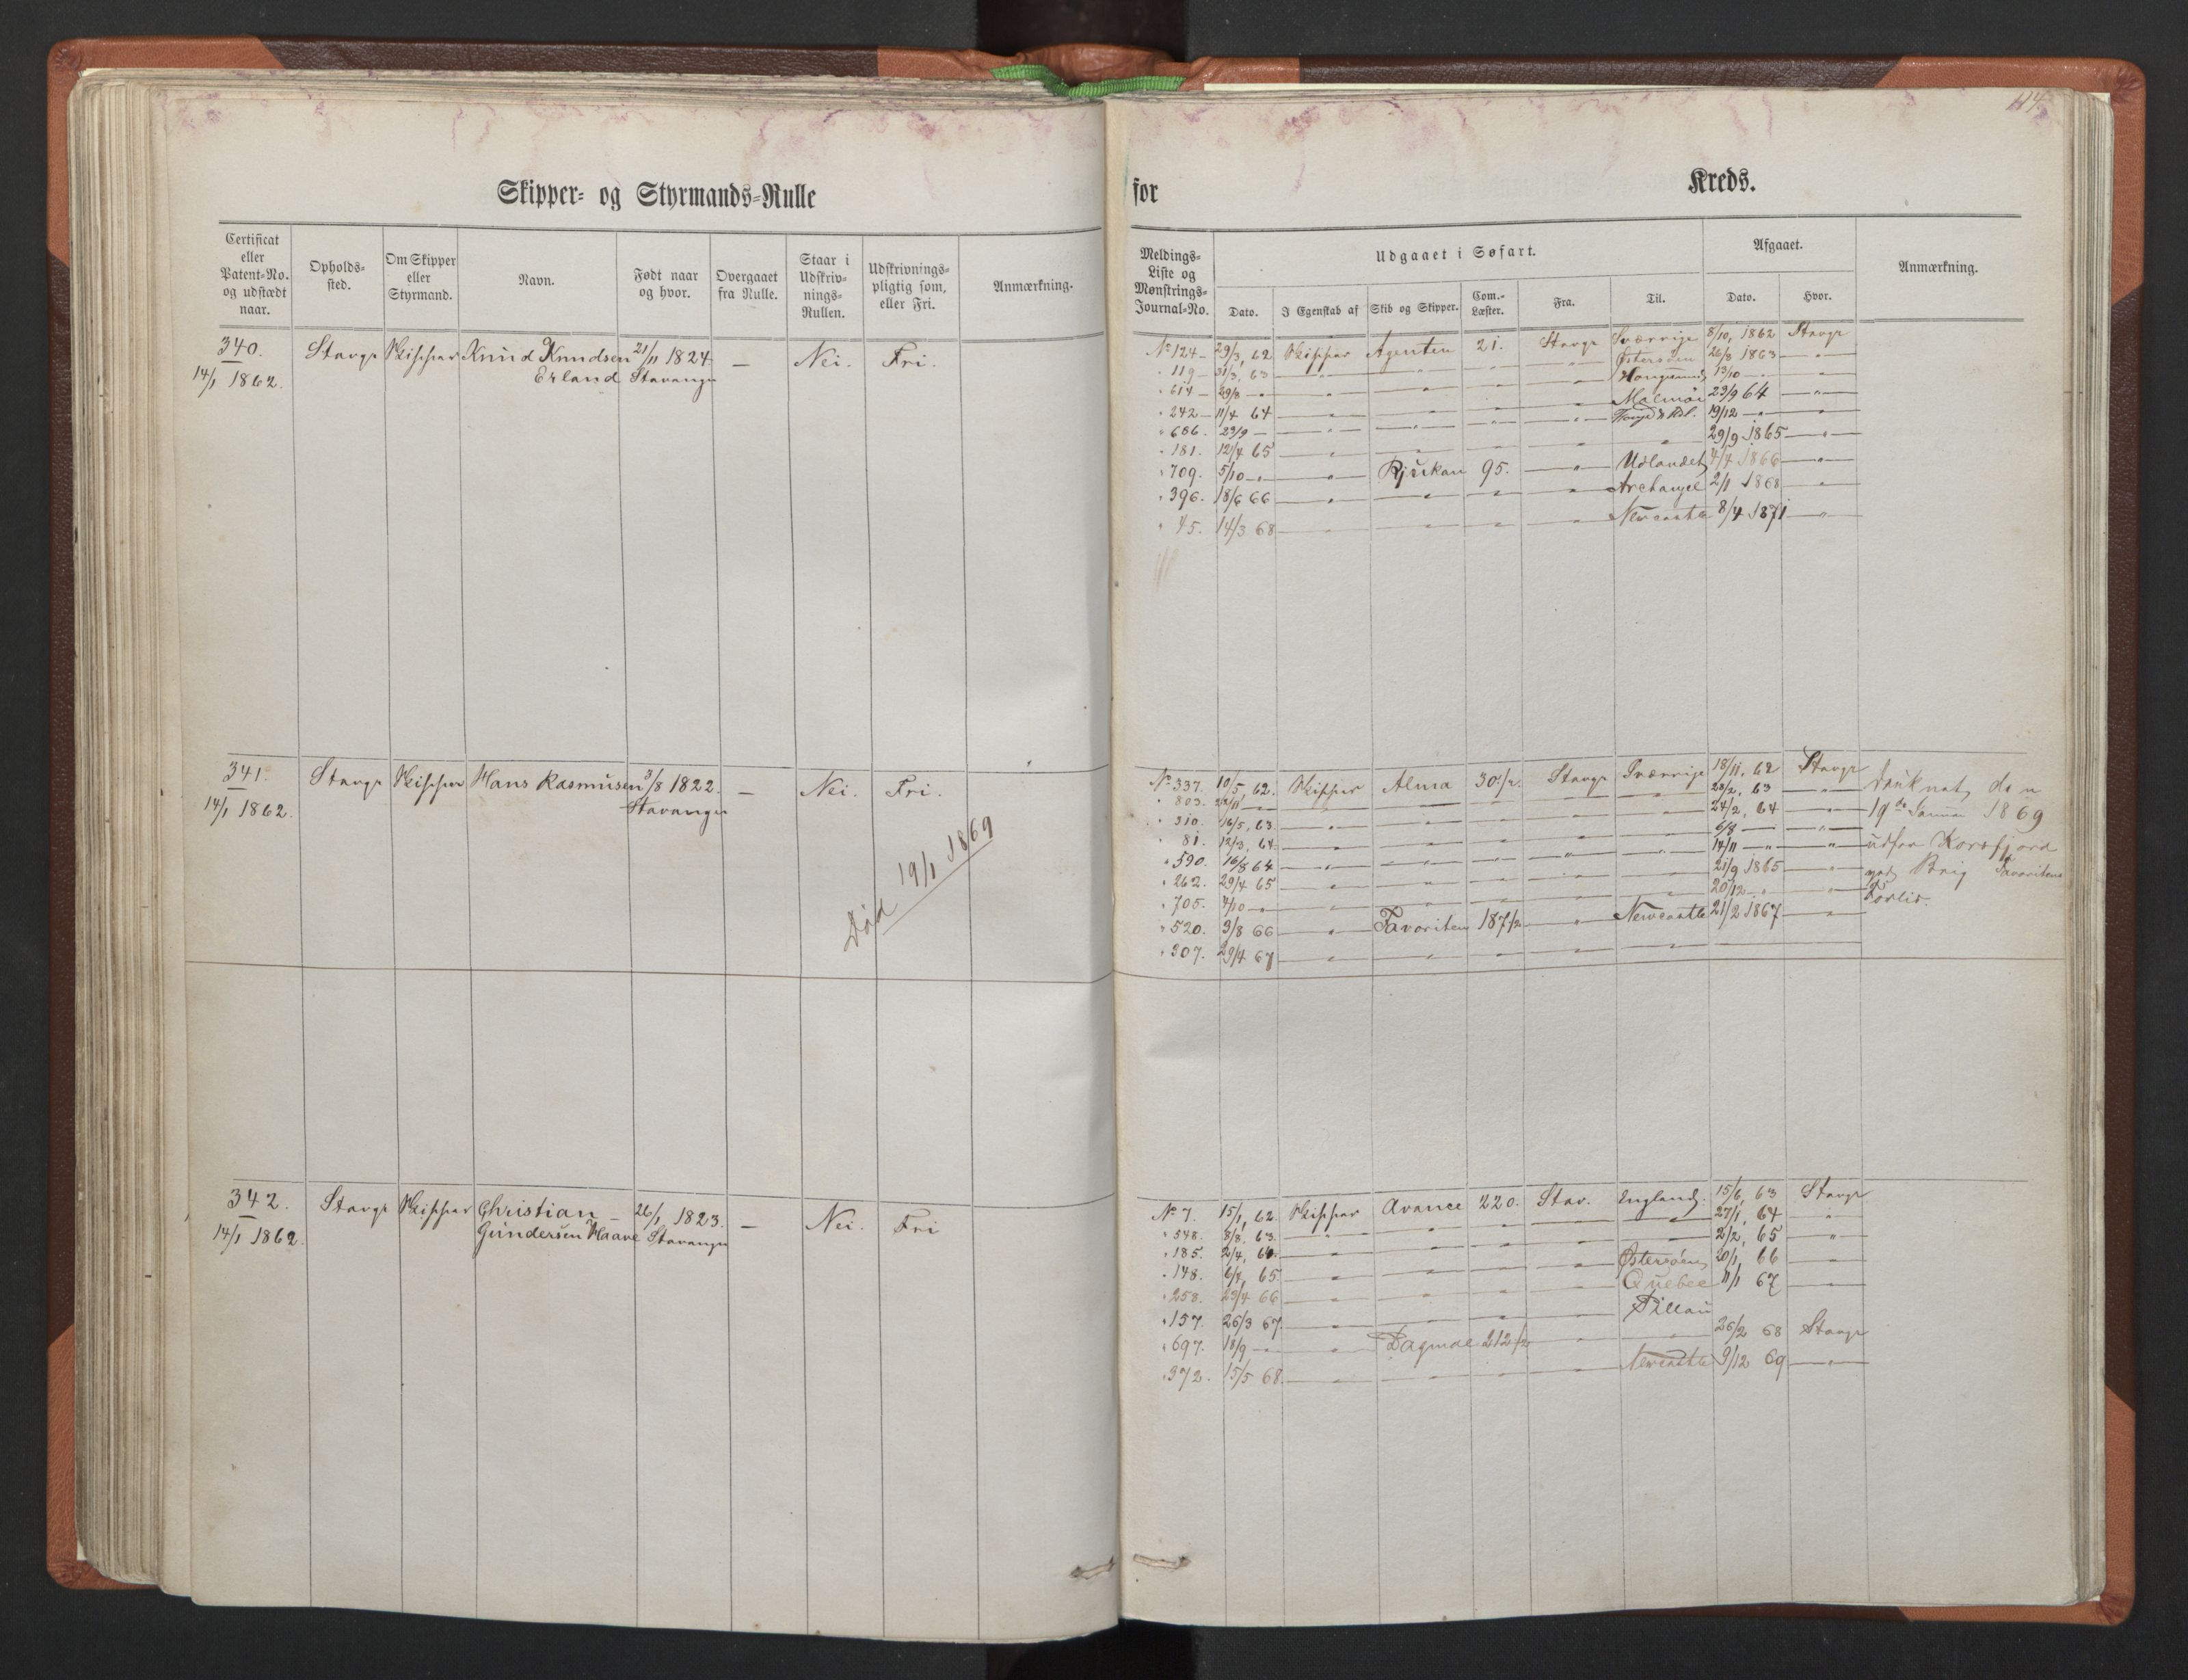 Skipper- og Styrmands-Rulle
Certificat eller Patent-No. og udstædt naar.
Opholds-sted.
Om Skipper eller Styrmand.
Navn.
Født naar og hvor.
Overgaaet fra Rulle.
Staar i Udskriv-nings-Rullen.
Udskrivnings-pligtig som, eller Fri.
Anmærkning.
340. Stavgr Skipper Knud Knudsen 21/11 1824 — Nei. Fri.
14/1 1862. Erland Stavanger
341. Stavgr Skipper Hans Rasmusen 3/8 1822. — Nei. Fri.
14/1 1862. Stavanger
Død 19/1 1869
342. Stavgr Skipper Christian 26/1 1823. — Nei. Fri
14/1 1862. Gundersen Haave Stavanger
for Kreds.
Meldings-Liste og Mønstrings-Journal-No.
Udgaaet i Søfart.
Dato.
I Egenskab af
Skib og Skipper.
Com.-Læster.
Fra.
Til.
Afgaaet.
Dato.
Hvor.
Anmærkning.
No 124 — 29/3, 62 Skipper Agenten 21. Stavgr Sværrige 8/10, 1862 Stavgr
" 119 — 31/3, 63 " " " " Østersøen 26/8 1863 — " —
" 614 — 29/8 — " " " " " 13/10 — " "
" 242 — 11/4 64 " " " " Malmøi 23/9 64 — " —
" 686. 23/9 — " " " " 19/12 — " "
" 181. 12/4 65 " " " " " 29/9 1865 — " —
" 709. 5/10 — " " Rjukan 95. " Udlandet 4/4 1866 — " —
" 396. 18/6 66 " " " " Archangel 2/1 1868 "
" 45. 14/3 68 " " " " Newcastle 8/4 1871 — " —
No 337. 10/5, 62. Skipper Alma 30 1/2. Stavgr Sværrige 18/11, 62 Stavgr
" 803. — " " " " " 63 — " —
" 310. 16/5, 63 " " " " " 24/2, 64 "
" 81. 12/3, 64. " " " " " 6/8 — "
" 590. 16/8 64 " " " " " 14/11 — " "
" 262. 29/4 65 " " " " " 21/9 1865 "
" 705. 4/10 — " " " " " " 20/12 — " "
" 520. 3/8 66 " Favoriten 187 1/2 " Newcastle 21/2 1867 "
" 307. 29/4 67 " " " " "
Druknet den
19de Januar 1869
udfor Korsfjord
med Brig Favoritens
Forlis.
No 7. 15/1, 62. Skipper Avance 220. Stav. England. 15/6, 63 Stavgr
" 548. 8/8. 63. " " " " " 27/1, 64 "
" 185. 2/4, 64. " " " " " 2/2, 65 "
" 148. 6/4, 65. " " " " Østersøen 20/1, 66 "
" 258. 23/4 66 " " " " Quebec 11/1 67 "
" 157. 26/3 67. " " " " Pillau
" 697. 11/9 — " " Dagmar 212 1/2 " " 26/2 68 Stavgr
" 372. 15/5 68 " " " " Newcastle 9/12 69 — " —